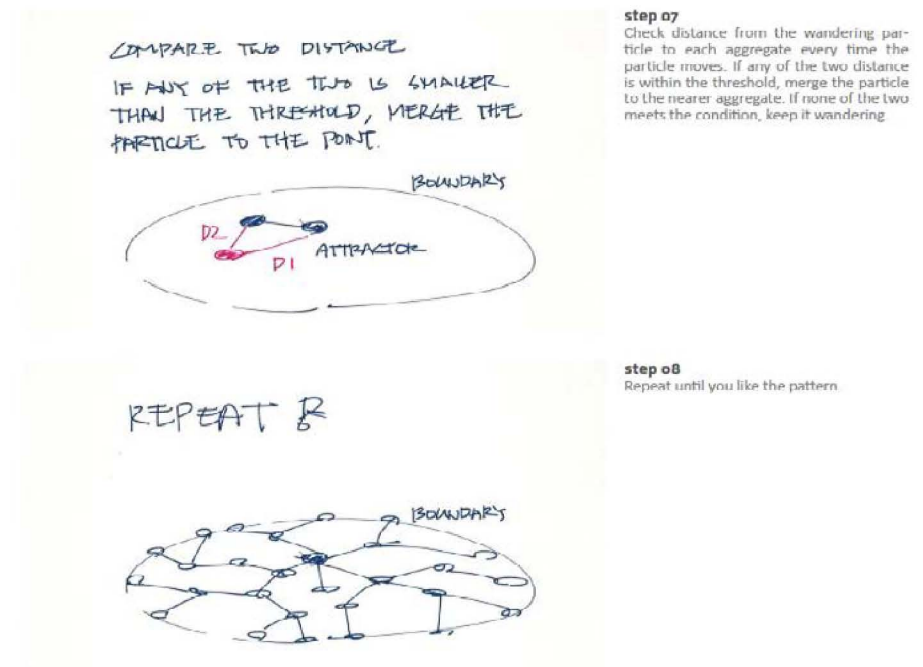 COMPARE TWO DISTANCE
IF ANY OF THE TWO IS SMALLER
THAN THE THRESHOLD, MERGE THE
PARTICLE TO THE POINT.
BOUNDARY
D2
D1
ATTRACTOR
step 07
Check distance from the wandering par-
ticle to each aggregate every time the
particle moves. If any of the two distance
is within the threshold, merge the particle
to the nearer aggregate. If none of the two
meets the condition, keep it wandering
REPEAT
BOUNDARY
step 08
Repeat until you like the pattern